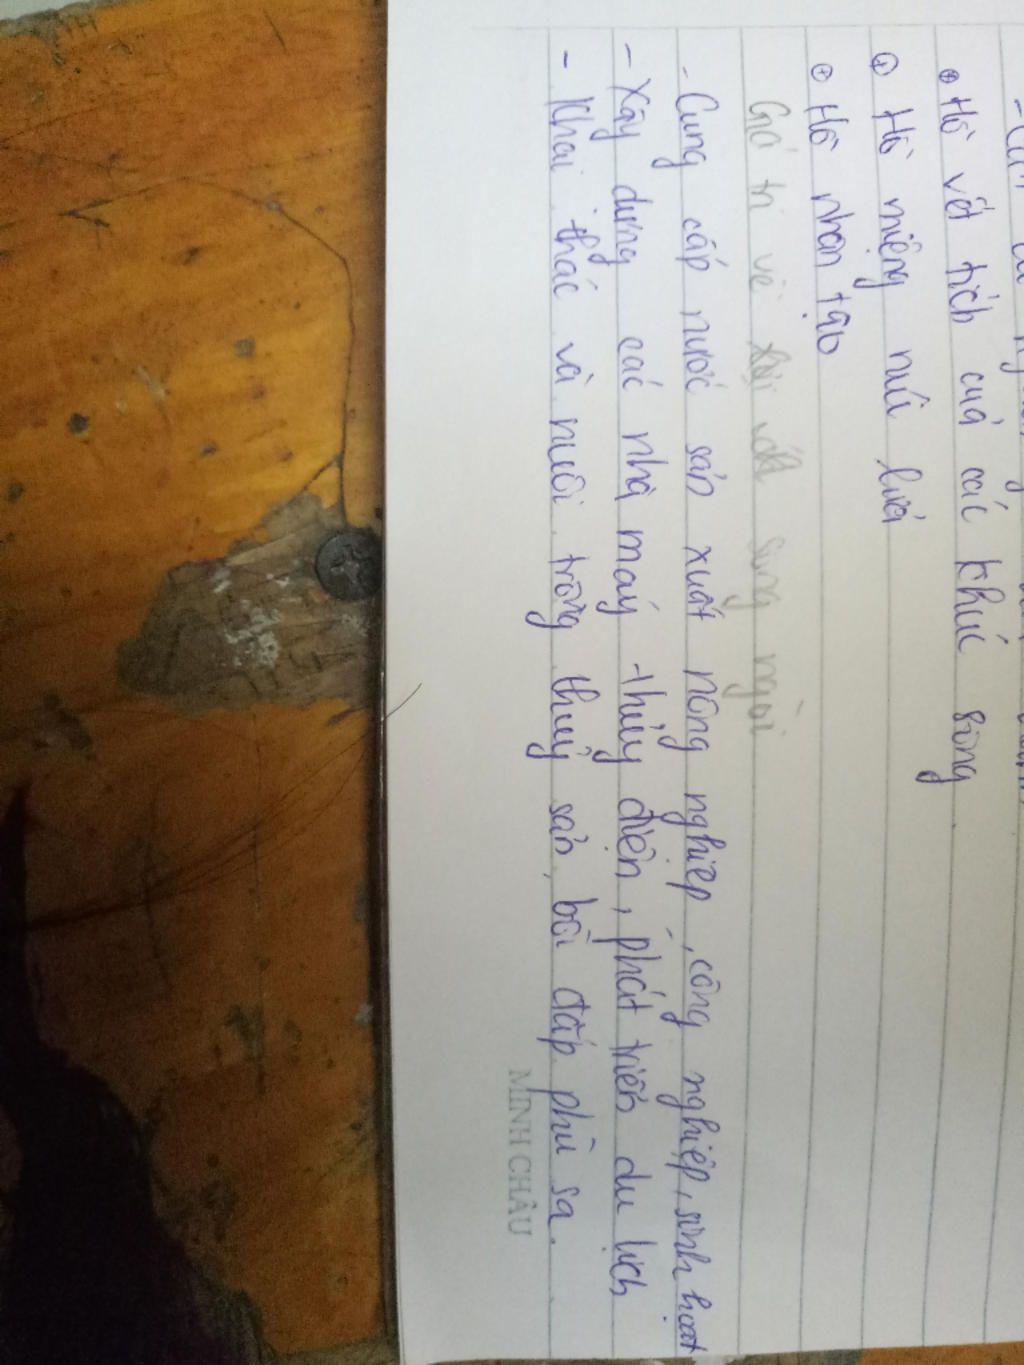 ⊕ Hồ vết tích của các khúc sông
⊕ Hồ miệng núi lửa
⊕ Hồ nhân tạo
Giá trị về sông ngòi
- Cung cấp nước sản xuất nông nghiệp, công nghiệp, sinh hoạt
- Xây dựng các nhà máy thủy điện, phát triển du lịch
- Khai thác và nuôi trồng thuỷ sản, bồi đắp phù sa.
MINH CHÂU